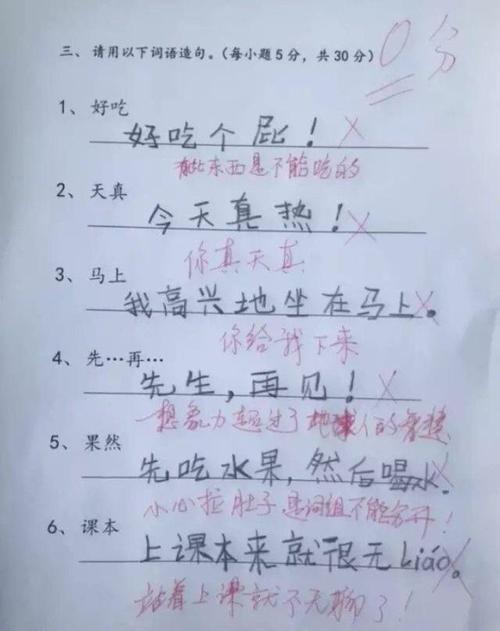 三、请用以下词语造句。(每小题5分，共30分)
0分
1、好吃
好吃个屁！
有些东西是不能吃的
2、天真
今天真热！
你真天真
3、马上
我高兴地坐在马上。
你给我下来
4、先…再…
先生，再见！
想象力超过了地球人的
5、果然
先吃水果，然后喝水。
小心拉肚子 是词组不能分开！
6、课本
上课本来就很无Liáo。
站着上课就不无聊了！